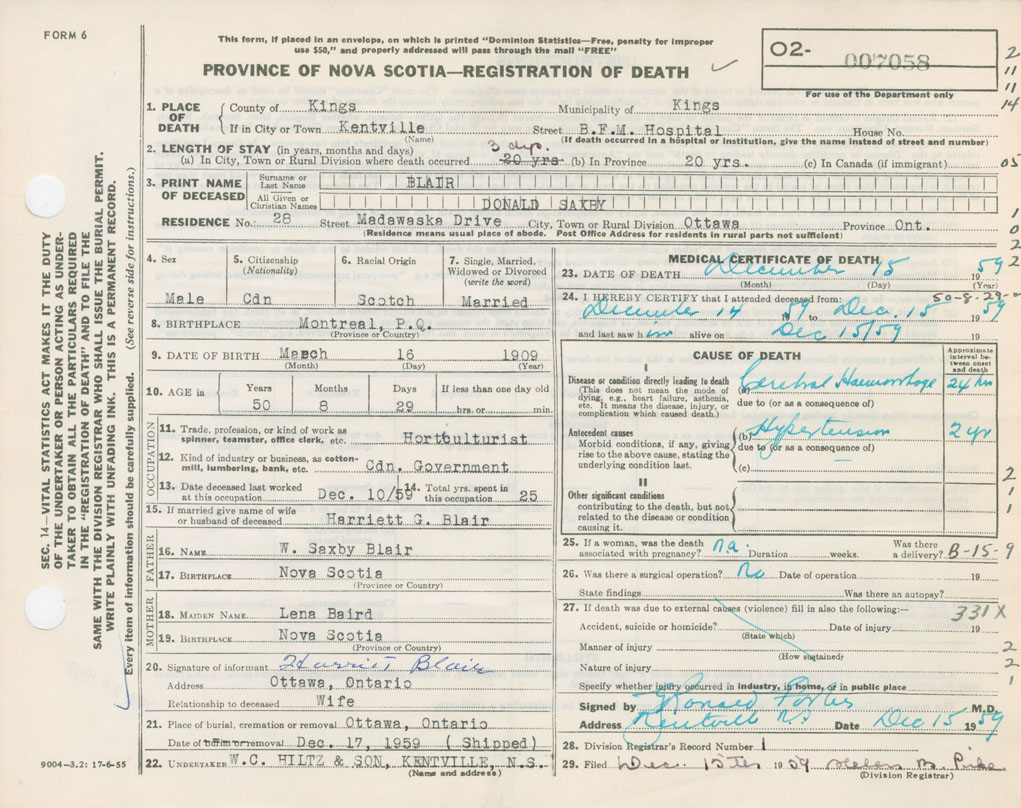 FORM 6
This form, if placed in an envelope, on which is printed "Dominion Statistics—Free, penalty for improper
use $50," and properly addressed will pass through the mail "FREE"
PROVINCE OF NOVA SCOTIA—REGISTRATION OF DEATH ✓
O2- 007058
For use of the Department only
2
11
11
14
1. PLACE OF DEATH
County of Kings Municipality of Kings
If in City or Town Kentville Street B.F.M. Hospital House No.
(Name) (If death occurred in a hospital or institution, give the name instead of street and number)
2. LENGTH OF STAY (in years, months and days)
3 dys.
(a) In City, Town or Rural Division where death occurred 20 yrs (b) In Province 20 yrs. (c) In Canada (if immigrant) 05
3. PRINT NAME OF DECEASED
Surname or Last Name BLAIR
All Given or Christian Names DONALD SAXBY
1
RESIDENCE No. 28 Street Madawaska Drive City, Town or Rural Division Ottawa Province Ont.
0
(Residence means usual place of abode. Post Office Address for residents in rural parts not sufficient)
2
4. Sex
Male
5. Citizenship
(Nationality)
Cdn
6. Racial Origin
Scotch
7. Single, Married,
Widowed or Divorced
(write the word)
Married
8. BIRTHPLACE Montreal, P.Q.
(Province or Country)
9. DATE OF BIRTH March 16 1909
(Month) (Day) (Year)
10. AGE in
Years Months Days If less than one day old
50 8 29 hrs. or min.
OCCUPATION
11. Trade, profession, or kind of work as
spinner, teamster, office clerk, etc. Horticulturist
12. Kind of industry or business, as cotton-
mill, lumbering, bank, etc. Cdn. Government
13. Date deceased last worked
at this occupation Dec. 10/59
14. Total yrs. spent in
this occupation 25
15. If married give name of wife
or husband of deceased Harriett G. Blair
FATHER
16. NAME W. Saxby Blair
17. BIRTHPLACE Nova Scotia
(Province or Country)
MOTHER
18. MAIDEN NAME Lena Baird
19. BIRTHPLACE Nova Scotia
(Province or Country)
20. Signature of informant Harriet Blair
Address Ottawa, Ontario
Relationship to deceased Wife
21. Place of burial, cremation or removal Ottawa, Ontario
Date of burial or removal Dec. 17, 1959 (Shipped)
22. UNDERTAKER W.C. HILTZ & SON, KENTVILLE, N.S.
(Name and address)
MEDICAL CERTIFICATE OF DEATH
2
23. DATE OF DEATH December 15 1959
(Month) (Day) (Year)
24. I HEREBY CERTIFY that I attended deceased from: 50-8-29
December 14 1959 to Dec. 15 1959
and last saw him alive on Dec 15/59 19
CAUSE OF DEATH
Approximate
interval be-
tween onset
and death
I
Disease or condition directly leading to death
(This does not mean the mode of
dying, e.g., heart failure, asthenia,
etc. It means the disease, injury, or
complication which caused death.)
(a) Cerebral Haemorrhage 24 hrs
due to (or as a consequence of)
Antecedent causes
Morbid conditions, if any, giving
rise to the above cause, stating the
underlying condition last.
(b) Hypertension 2 yr
due to (or as a consequence of)
(c)
II
Other significant conditions
contributing to the death, but not
related to the disease or condition
causing it.
2
1
1
25. If a woman, was the death
associated with pregnancy? n.a. Duration weeks. Was there
a delivery? B-15-9
26. Was there a surgical operation? No Date of operation 19
State findings Was there an autopsy?
27. If death was due to external causes (violence) fill in also the following:— 331X
Accident, suicide or homicide? Date of injury 19
(State which)
Manner of injury 2
(How sustained)
Nature of injury 2
Specify whether injury occurred in industry, in home, or in public place 1
Signed by Ronald Forbes M.D.
Address Kentville NS Date Dec 15 1959
28. Division Registrar's Record Number 1
29. Filed Dec. 15th 1959 Helen M.
(Division Registrar)
SEC. 14—VITAL STATISTICS ACT MAKES IT THE DUTY
OF THE UNDERTAKER OR PERSON ACTING AS UNDER-
TAKER TO OBTAIN ALL THE PARTICULARS REQUIRED
IN THE "REGISTRATION OF DEATH" AND TO FILE THE
SAME WITH THE DIVISION REGISTRAR WHO SHALL ISSUE THE BURIAL PERMIT.
WRITE PLAINLY WITH UNFADING INK. THIS IS A PERMANENT RECORD.
Every item of information should be carefully supplied. (See reverse side for instructions.)
9004-3.2: 17-6-55